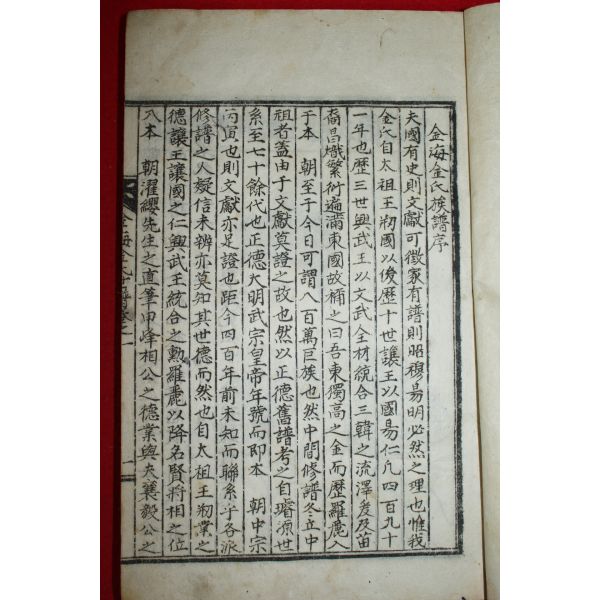 金海金氏族譜序
夫國有史則文獻可徵家有譜則昭穆易明必然之理也惟我
金氏自太祖王刱國以後歷十世讓王以國易仁凡四百九十
一年也歷三世興武王以文武全材統合三韓之流澤爰及苗
裔昌熾繁衍遍滿東國故稱之曰吾東獨高之金而歷羅麗入
于本 朝至于今日可謂八百萬巨族也然中間修譜各立中
祖者盖由于文獻莫證之故也然以正德舊譜考之自璿源世
系至七十餘代也正德大明武宗皇帝年號而即本 朝中宗
丙寅也則文獻亦足證也距今四百年前未知而聯系于各派
修譜之人疑信未辨亦莫知其世德而然也自太祖王刱業之
德讓王讓國之仁興武王統合之勳羅麗以降名賢將相之位
入本 朝濯纓先生之直筆甲峰相公之德業與夫襄毅公之
金海金氏